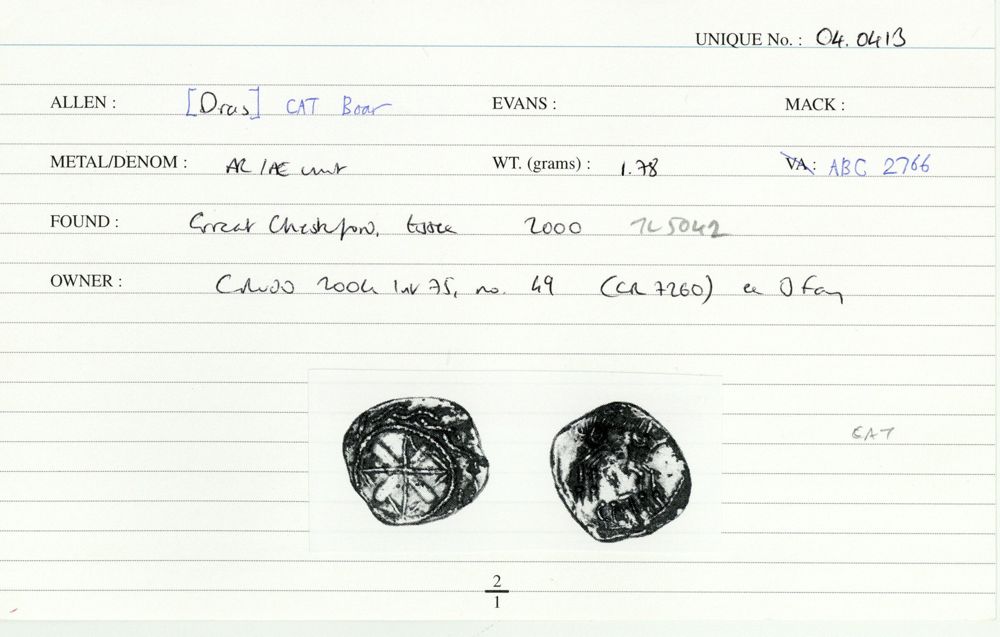 UNIQUE No. : 04.0413
ALLEN : [Dras] CAT Boar EVANS : MACK :
METAL/DENOM : AR/AE unit WT. (grams) : 1.78 VA: ABC 2766
FOUND : Great Chesterford, Essex 2000 TL5042
OWNER : CR 2004 no. 49 (CR 7260) ex D Fox
CAT
2
1